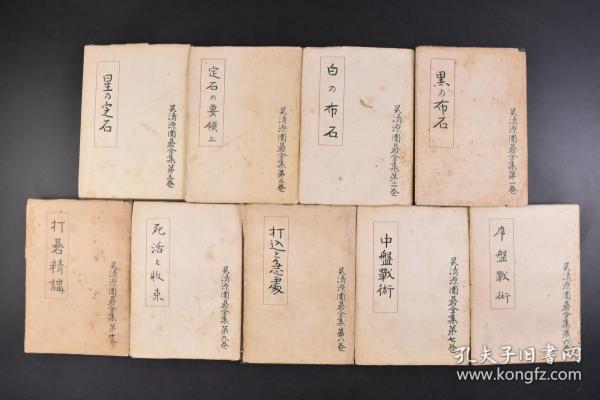 黒の布石
呉清源圍碁全集第一巻
白の布石
呉清源圍碁全集第二巻
定石の要領上
呉清源圍碁全集第三巻
星の定石
呉清源圍碁全集第五巻
序盤戰術
呉清源圍碁全集第六巻
中盤戰術
呉清源圍碁全集第七巻
打込と急處
呉清源圍碁全集第八巻
死活と收束
呉清源圍碁全集第九巻
打碁精講
呉清源圍碁全集第十巻
孔夫子旧书网
www.kongfz.com